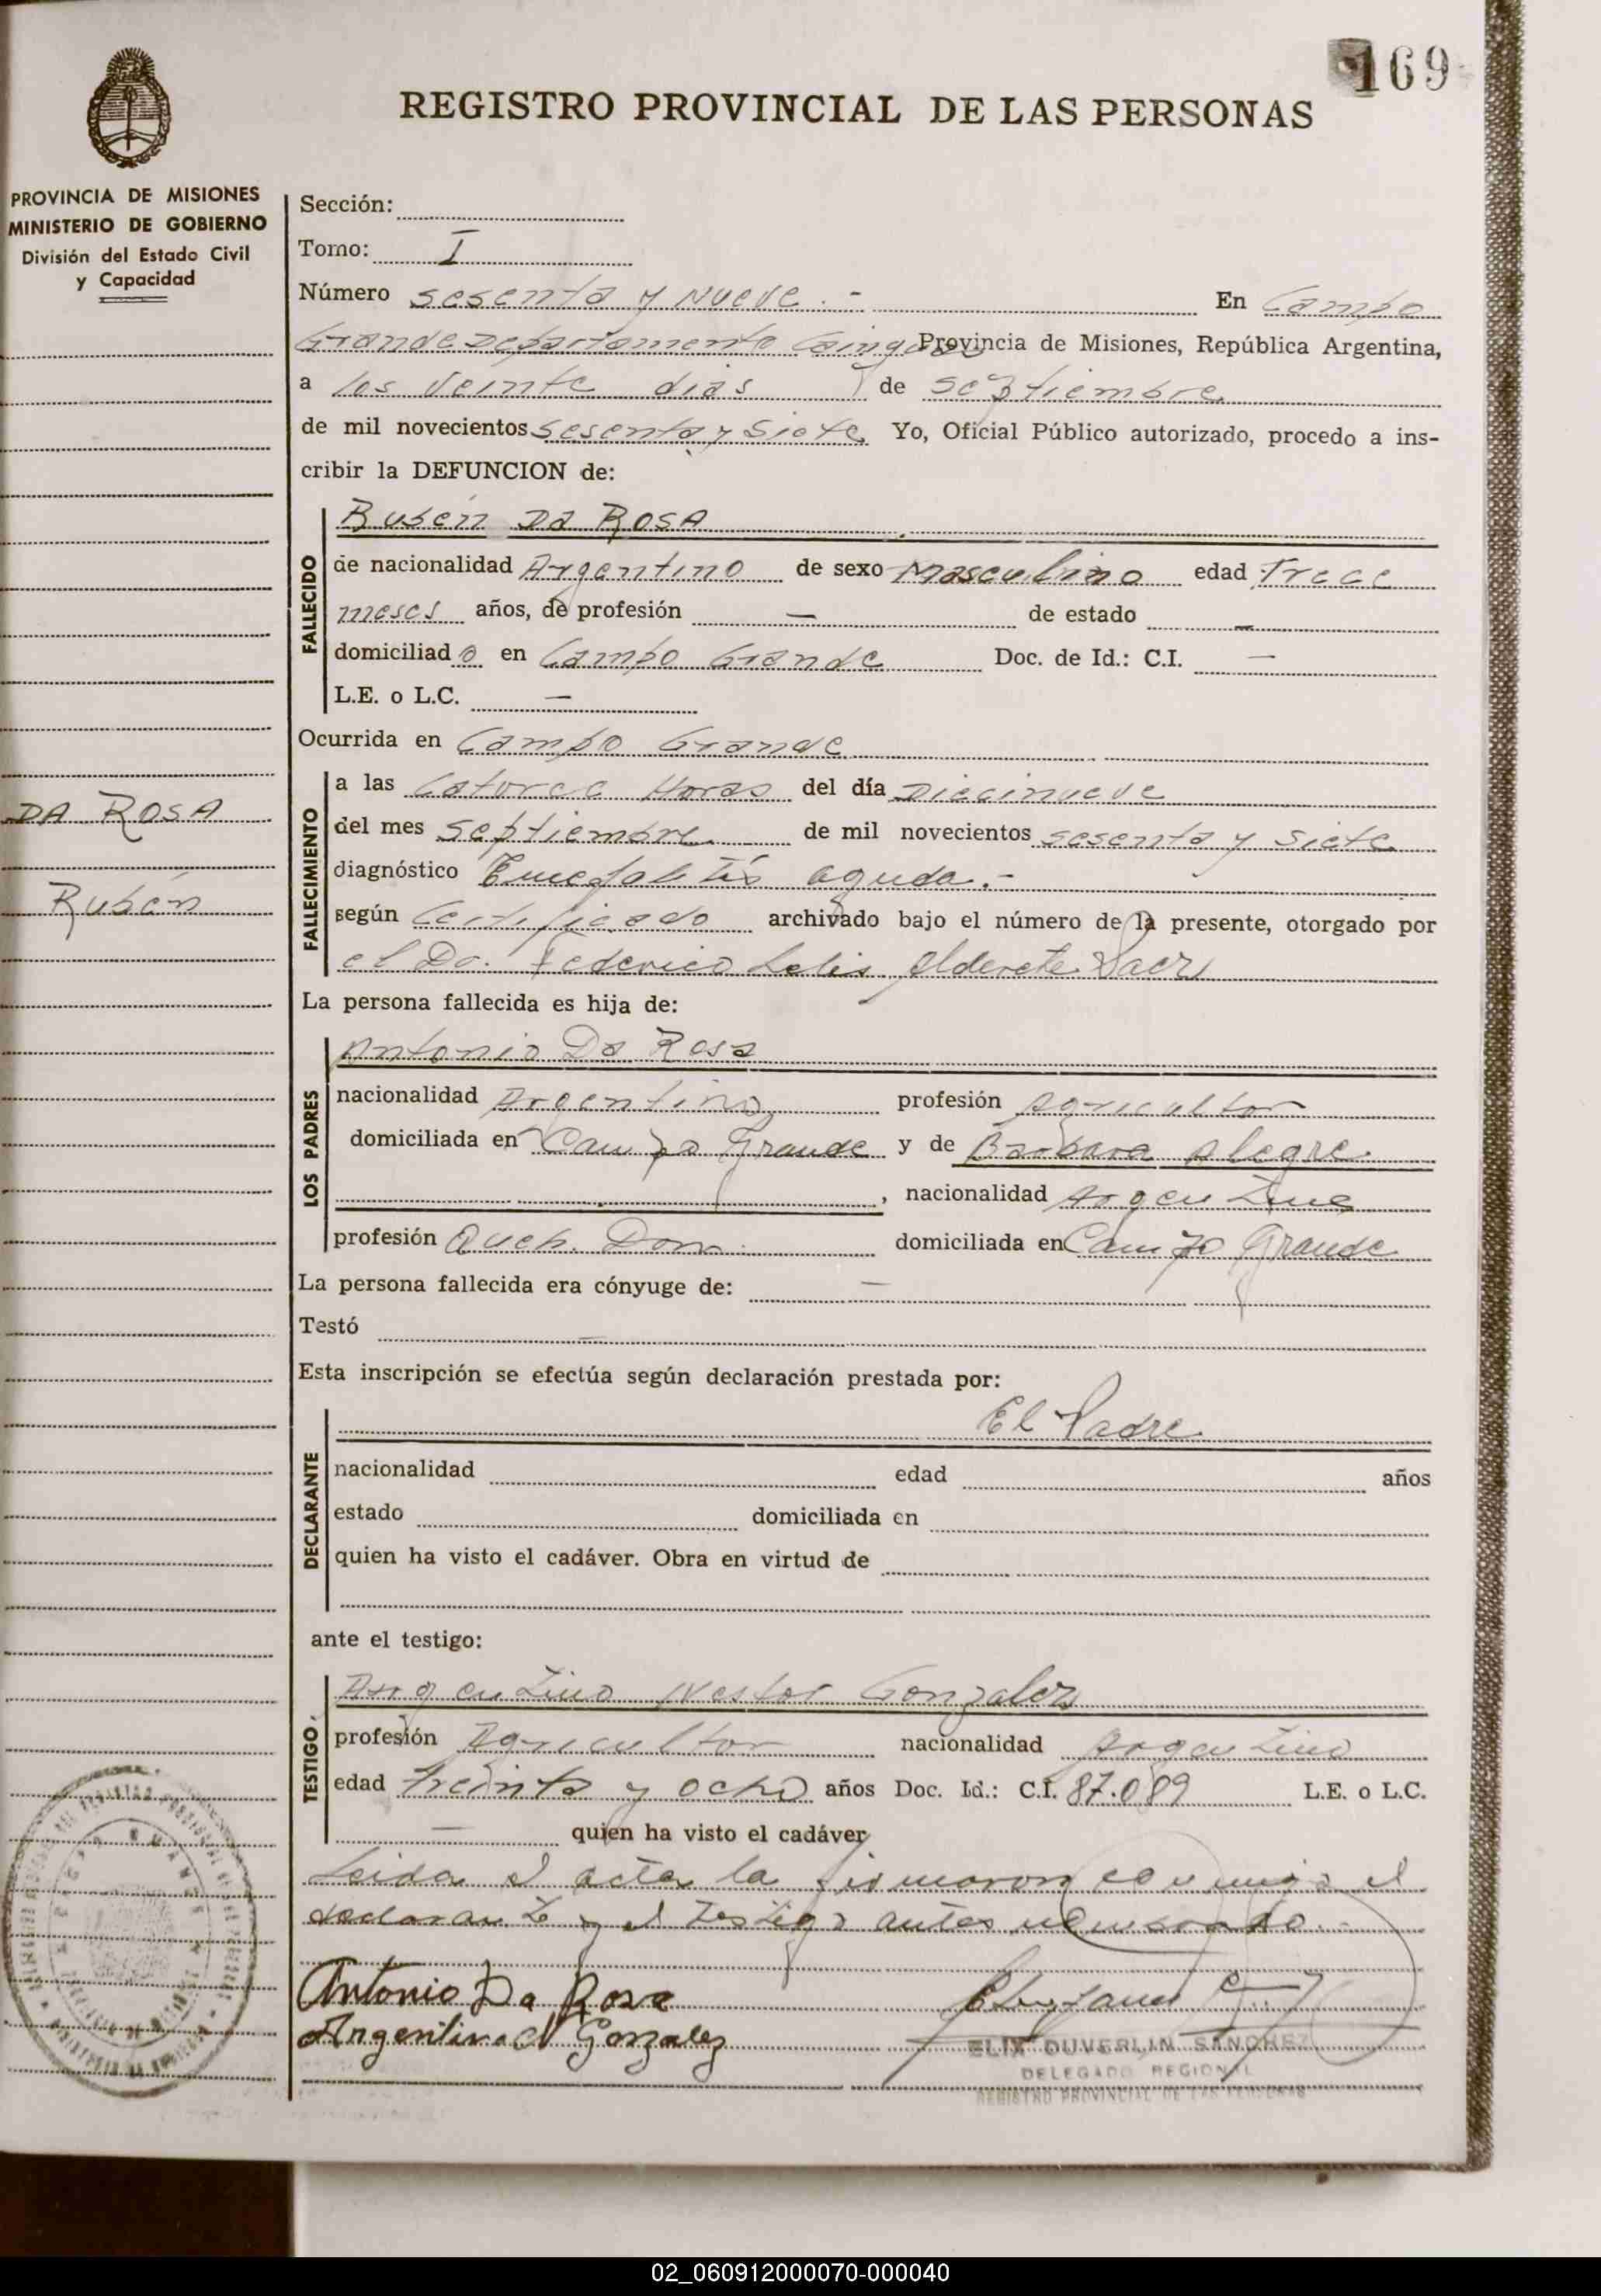 169
REGISTRO PROVINCIAL DE LAS PERSONAS
PROVINCIA DE MISIONES
MINISTERIO DE GOBIERNO
División del Estado Civil
y Capacidad
Sección:
Tomo: I
Número sesenta y Nueve.- En Campo
Grande Departamento Cainguás Provincia de Misiones, República Argentina,
a los veinte dias de septiembre
de mil novecientos sesenta y siete Yo, Oficial Público autorizado, procedo a ins-
cribir la DEFUNCION de:
Rubén Da ROSA
FALLECIDO
de nacionalidad Argentino de sexo Masculino edad Trece
meses años, de profesión — de estado —
domiciliado en Campo Grande Doc. de Id.: C.I. —
L.E. o L.C. —
Ocurrida en Campo Grande
FALLECIMIENTO
a las Catorce Horas del día Diecinueve
del mes septiembre de mil novecientos sesenta y siete
DA ROSA
diagnóstico Encefalitis aguda.-
Rubén
según Certificado archivado bajo el número de la presente, otorgado por
el Dr. Federico Lelis Alderete Saez
La persona fallecida es hija de:
LOS PADRES
Antonio Da Rosa
nacionalidad Argentino profesión Agricultor
domiciliada en Campo Grande y de Barbara Alegre
, nacionalidad Argentina
profesión Queh. Dom. domiciliada en Campo Grande
La persona fallecida era cónyuge de: —
Testó —
Esta inscripción se efectúa según declaración prestada por:
DECLARANTE
El Padre
nacionalidad edad años
estado domiciliada en
quien ha visto el cadáver. Obra en virtud de
ante el testigo:
TESTIGO
Argentino Nestor Gonzalez
profesión Agricultor nacionalidad Argentino
edad treinta y ocho años Doc. Id.: C.I. 87.089 L.E. o L.C.
— quien ha visto el cadáver
Leida el acta la firmaron conmigo el
declarante y el testigo antes nombrado.-
Antonio Da Rosa
Argentino N Gonzalez
ELIX DUVERLIN SANCHEZ
DELEGADO REGIONAL
REGISTRO PROVINCIAL DE LAS PERSONAS
02_060912000070-000040